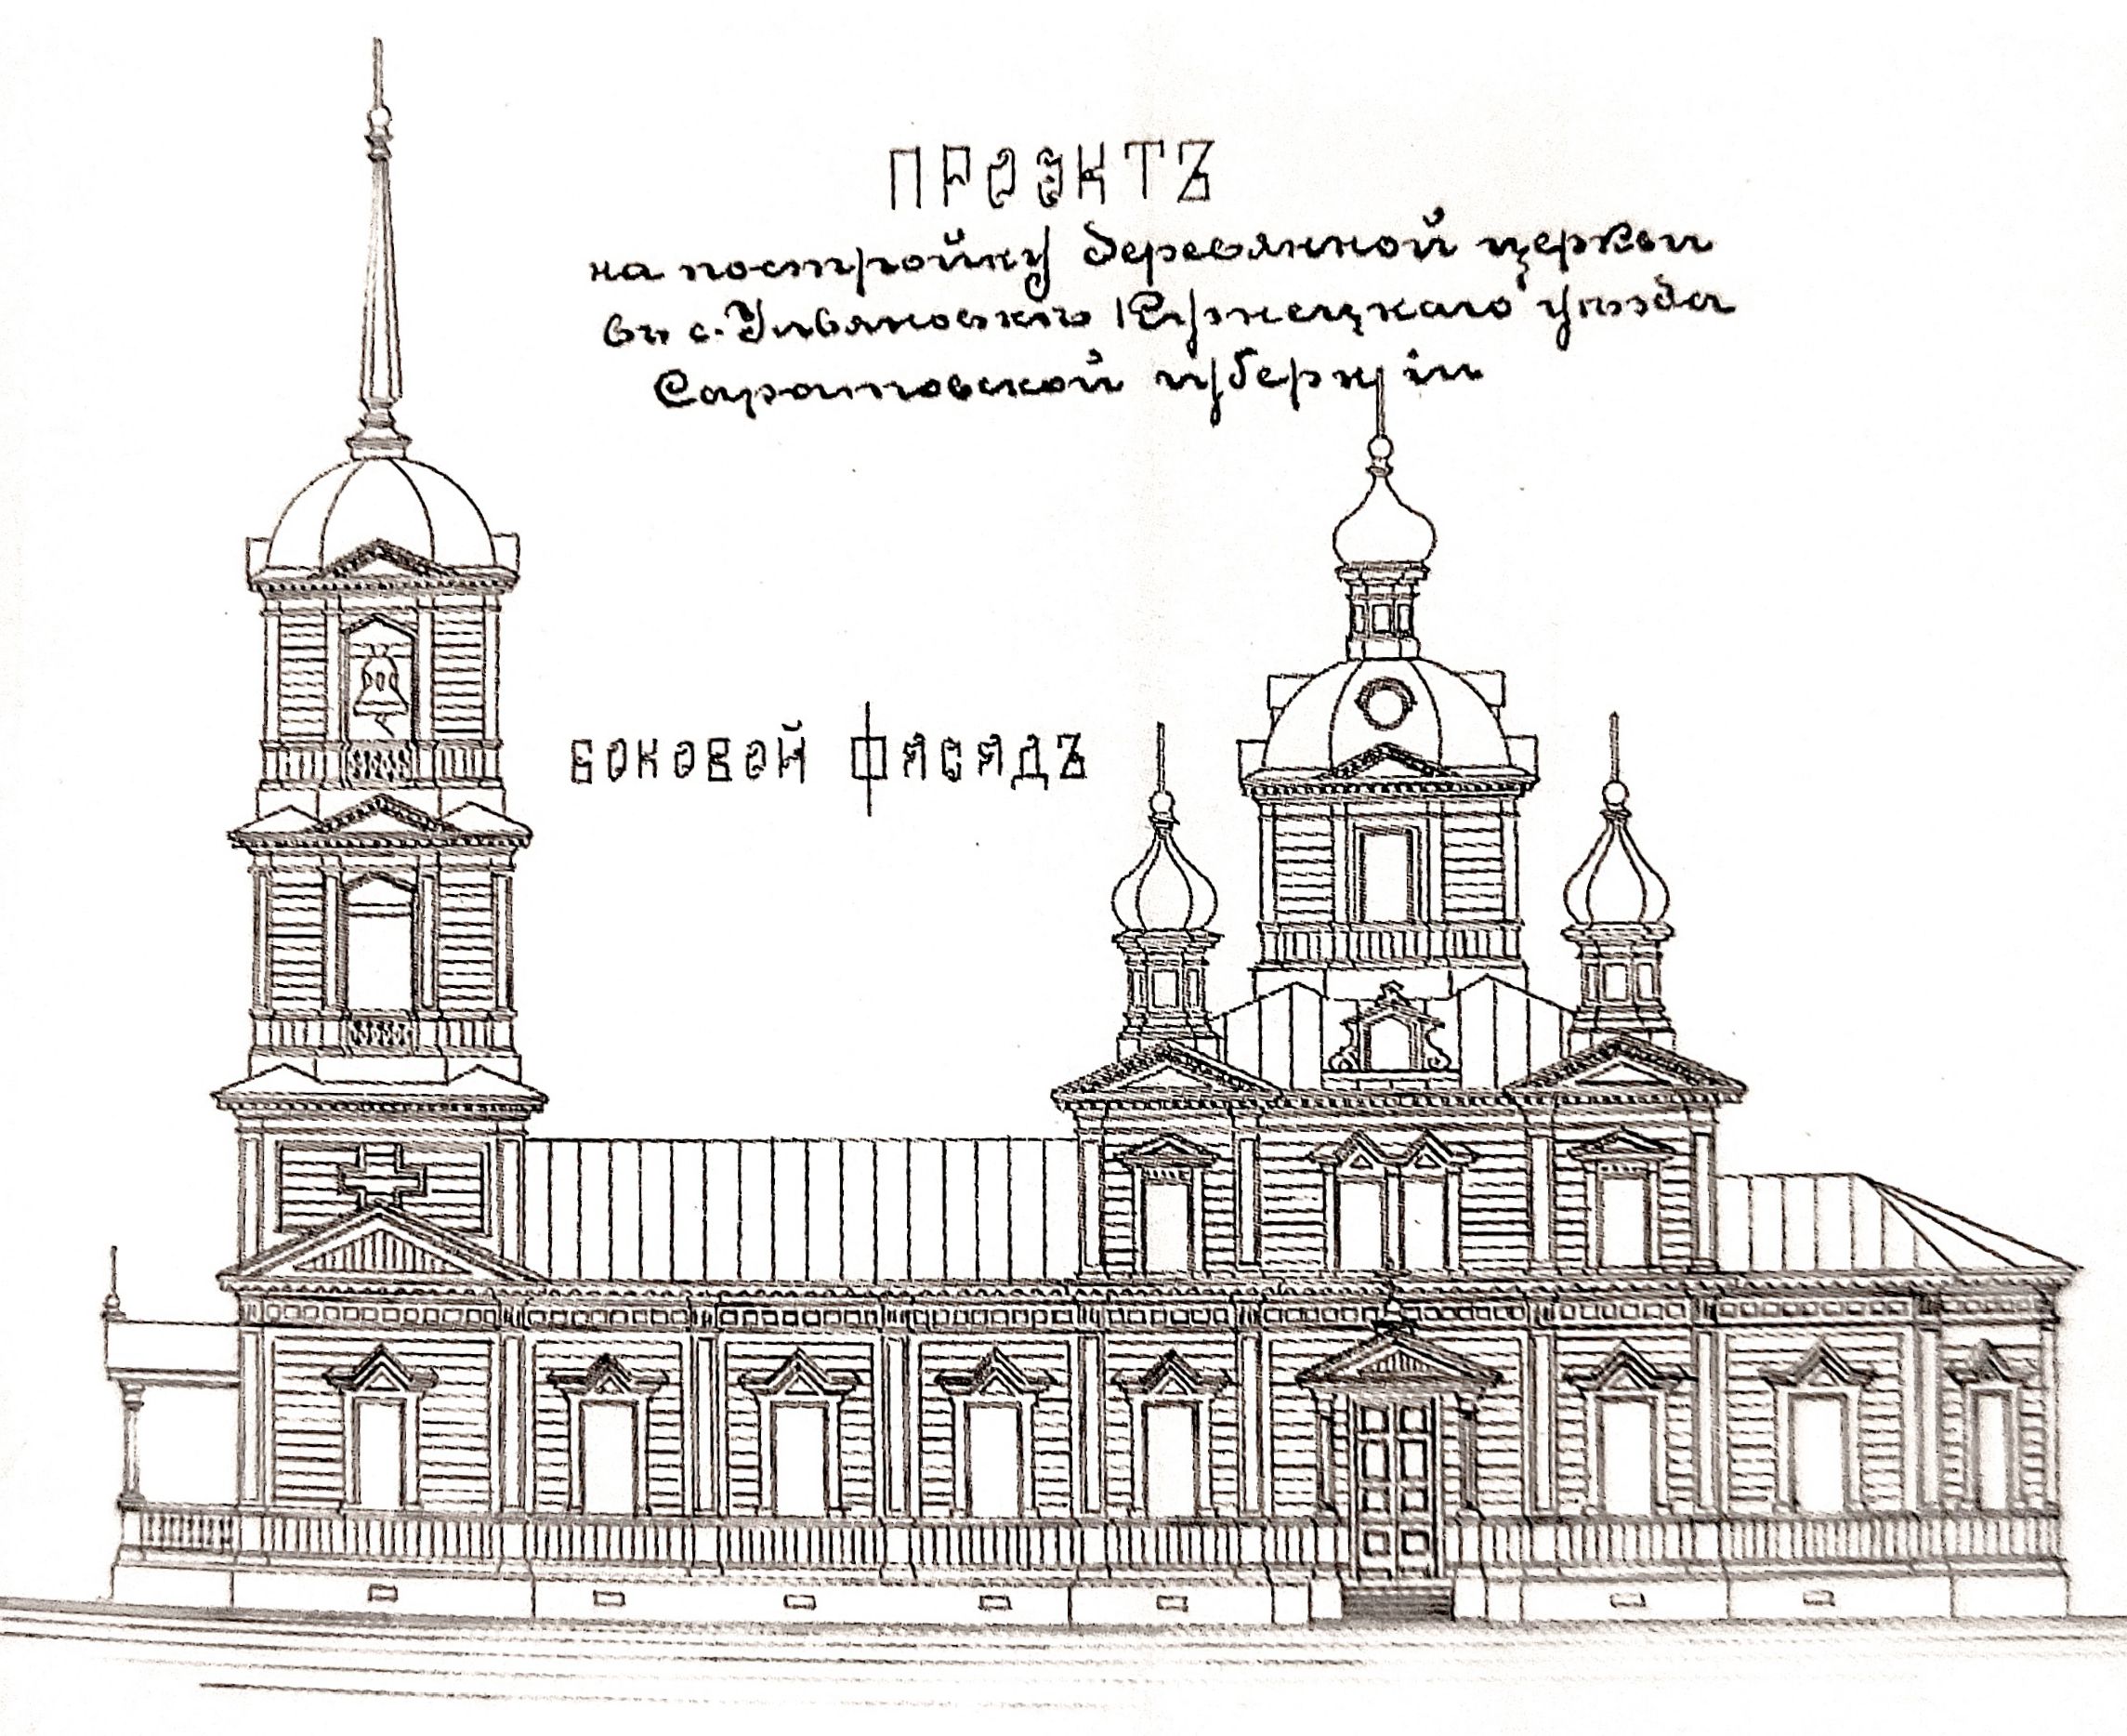 ПРОЭКТЪ
на постройку деревянной церкви
въ с. Ульяновкѣ Кузнецкаго уѣзда
Саратовской губерніи
БОКОВОЙ ФАСАДЪ